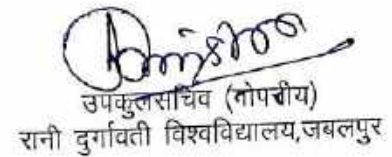 उपकुलसचिव (गोपनीय)
रानी दुर्गावती विश्वविद्यालय,जबलपुर